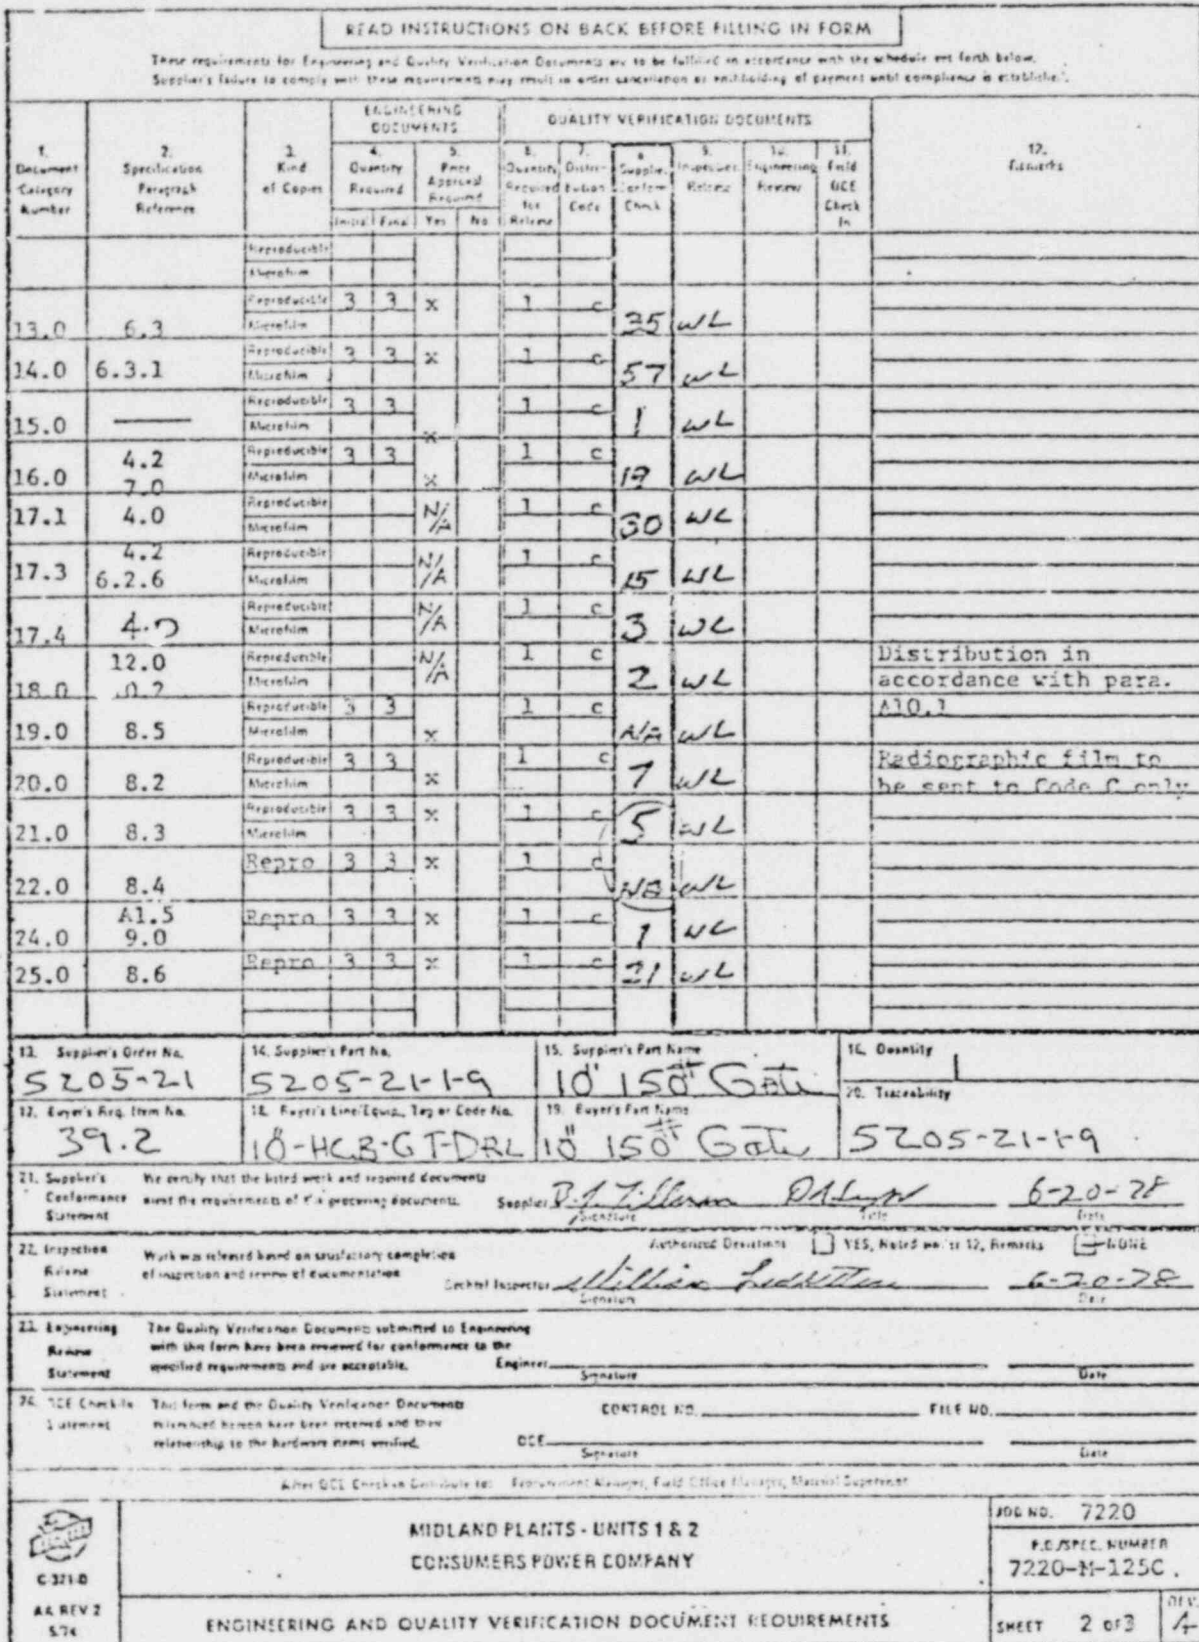 READ INSTRUCTIONS ON BACK BEFORE FILLING IN FORM
These requirements for Engineering and Quality Verification Documents are to be fulfilled in accordance with the schedule set forth below.
Supplier's failure to comply with these requirements may result in order cancellation or withholding of payment until compliance is established.
ENGINEERING DOCUMENTS
QUALITY VERIFICATION DOCUMENTS
1. Document Category Number
2. Specification Paragraph Reference
3. Kind of Copies
4. Quantity Required
Initial Final
5. Prior Approval Required
Yes No
6. Quantity Required for Release
7. Distribution Code
8. Supplier Conform Check
9. Inspection Release
10. Engineering Review
11. Field QCE Check In
12. Remarks
Reproducible
Microfilm
13.0 6.3 Reproducible 3 3 x 1 c 35 WL
Microfilm
14.0 6.3.1 Reproducible 3 3 x 1 c 57 WL
Microfilm
15.0 — Reproducible 3 3 x 1 c 1 WL
Microfilm
16.0 4.2 7.0 Reproducible 3 3 x 1 c WL
Microfilm
17.1 4.0 Reproducible N/A 1 c 30 WL
Microfilm
17.3 4.2 6.2.6 Reproducible N/A 1 c 15 WL
Microfilm
17.4 4.0 Reproducible N/A 1 c 3 WL
Microfilm
18.0 12.0 Reproducible N/A 1 c 2 WL Distribution in
Microfilm accordance with para.
19.0 8.5 Reproducible 3 3 x 1 c N/A WL A10.1
Microfilm
20.0 8.2 Reproducible 3 3 x 1 c WL Radiographic film to
Microfilm be sent to Code C only
21.0 8.3 Reproducible 3 3 x 1 c 5 WL
Microfilm
22.0 8.4 Repro 3 3 x 1 c WL
24.0 A1.5 9.0 Repro 3 3 x 1 c 1 WL
25.0 8.6 Repro 3 3 x 1 c WL
13. Supplier's Order No.
5205-21
14. Supplier's Part No.
5205-21-1-9
15. Supplier's Part Name
10" 150# Gate
16. Quantity
1
17. Buyer's Req. Item No.
39.2
18. Buyer's Line/Equip., Tag or Code No.
10"-HCB-GT-DRL
19. Buyer's Part Name
10" 150# Gate
20. Traceability
5205-21-1-9
21. Supplier's Conformance Statement
We certify that the listed work and required documents
meet the requirements of the procuring documents.
Supplier
Signature Title Date
6-20-78
22. Inspection Release Statement
Work was released based on satisfactory completion
of inspection and review of documentation
Authorized Deviations YES, Noted under 12, Remarks NONE
Bechtel Inspector William
Signature Date
6-20-78
23. Engineering Review Statement
The Quality Verification Documents submitted to Engineering
with this form have been reviewed for conformance to the
specified requirements and are acceptable.
Engineer
Signature Date
24. QCE Check-In Statement
This form and the Quality Verification Documents
referenced hereon have been received and their
relationship to the hardware items verified.
CONTROL NO. FILE NO.
QCE
Signature Date
After QCE Check-in Distribute to: Procurement Manager, Field Office Manager, Material Supervisor
C-321-D
AA REV 2
5.74
MIDLAND PLANTS - UNITS 1 & 2
CONSUMERS POWER COMPANY
ENGINEERING AND QUALITY VERIFICATION DOCUMENT REQUIREMENTS
JOB NO. 7220
P.O./SPEC. NUMBER
7220-M-125C
SHEET 2 OF 3
REV. 4